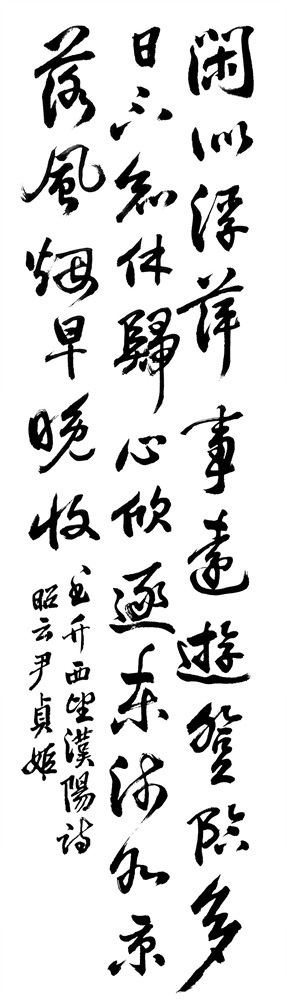 閑似浮萍事遠遊登臨多
日不知休歸心欲逐東流水京
落風煙早晚收
書竹西望漢陽詩
昭云尹貞姬